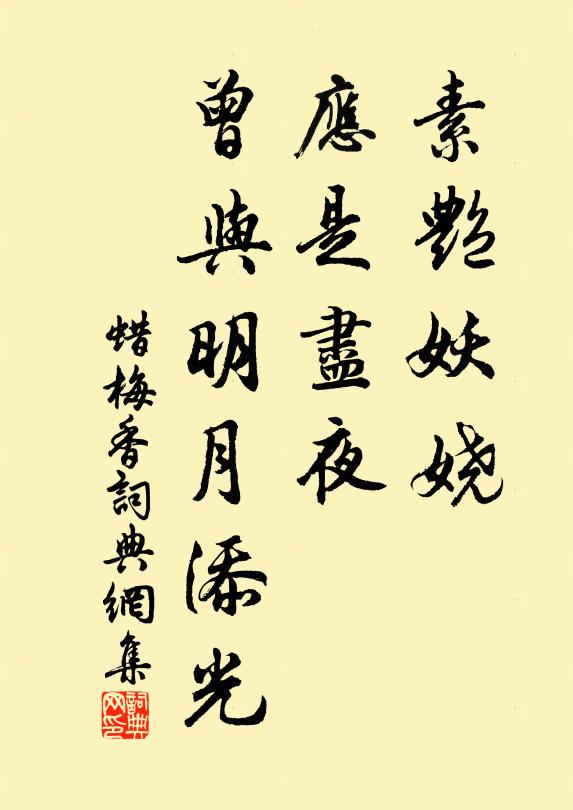 素艷妖嬈
應是盡夜
曾與明月添光
蜡梅香詞典網集
詞典網印